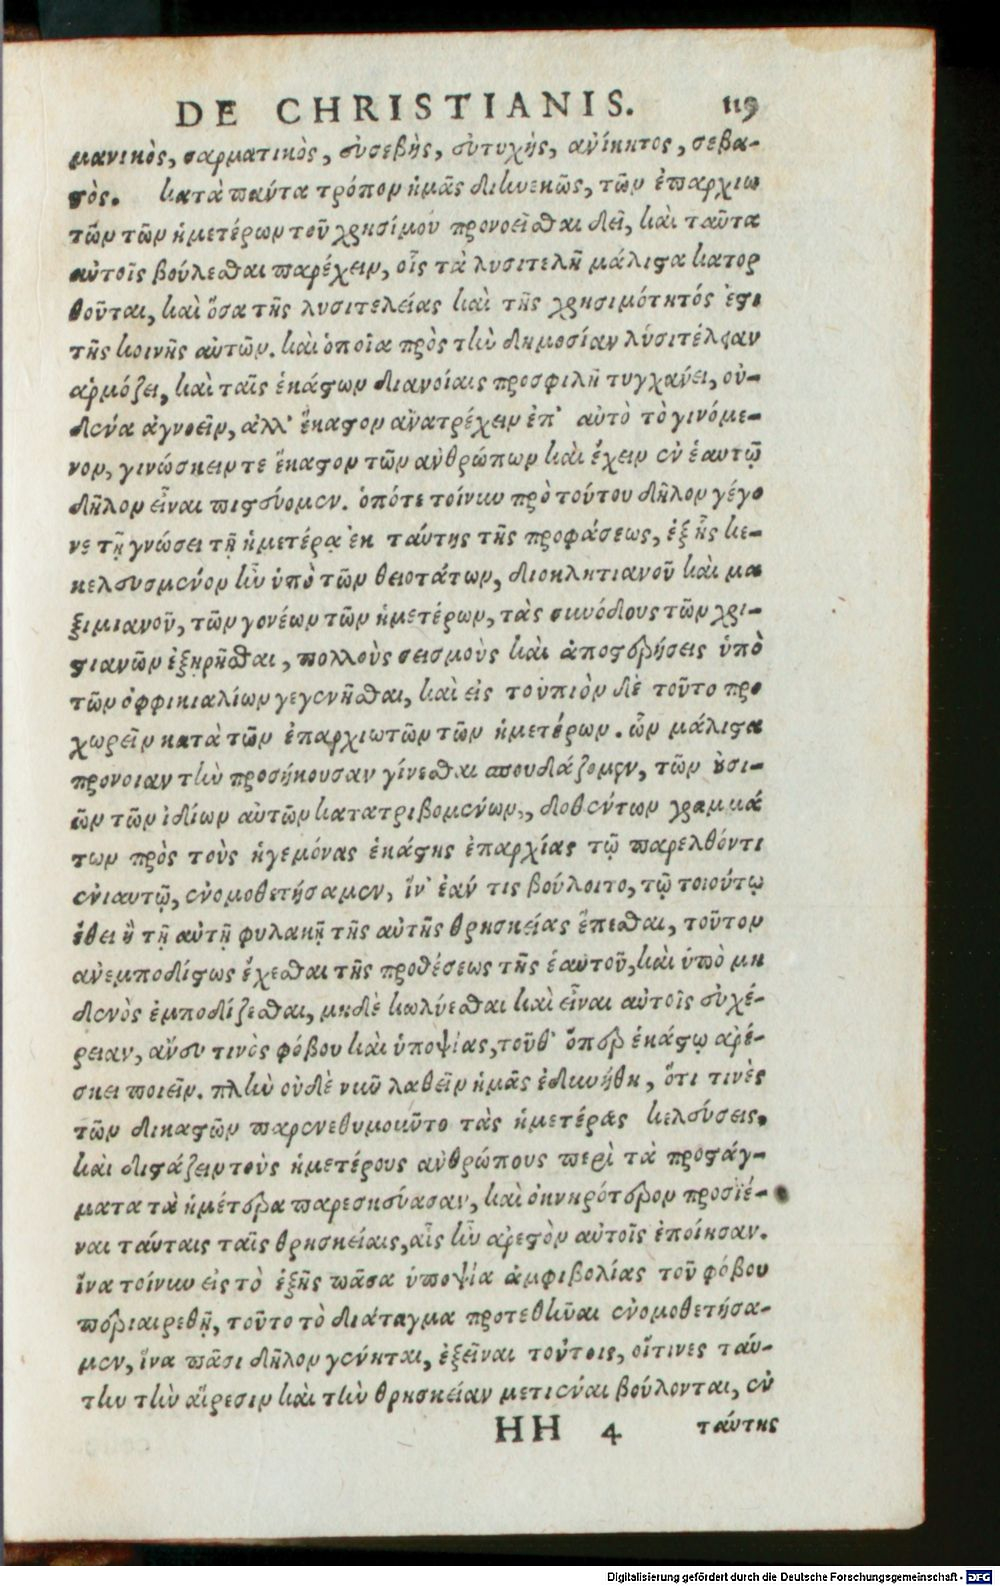 DE CHRISTIANIS. 119
μανικὸς, σαρματικὸς, εὐσεβὴς, εὐτυχὴς, ἀνίκητος, σεβα-
στὸς. κατὰ πάντα τρόπον ἡμᾶς διηνεκῶς, τῶν ἐπαρχιω
τῶν τῶν ἡμετέρων τοῦ χρησίμου προνοεῖσθαι δεῖ, καὶ ταῦτα
αὐτοῖς βούλεσθαι παρέχειν, οἷς τὰ λυσιτελῆ μάλιστα κατορ
θοῦται, καὶ ὅσα τῆς λυσιτελείας καὶ τῆς χρησιμότητός ἐστι
τῆς κοινῆς αὐτῶν. καὶ ὁποῖα πρὸς τὴν δημοσίαν λυσιτέλειαν
ἁρμόζει, καὶ ταῖς ἑκάστων διανοίαις προσφιλῆ τυγχάνει, οὐ-
δένα ἀγνοεῖν, ἀλλ' ἕκαστον ἀνατρέχειν ἐπ' αὐτὸ τὸ γινόμε-
νον, γινώσκειν τε ἕκαστον τῶν ἀνθρώπων καὶ ἔχειν ἐν ἑαυτῷ
δῆλον εἶναι πιστεύομεν. ὁπότε τοίνυν πρὸ τούτου δῆλον γέγο
νε τῇ γνώσει τῇ ἡμετέρᾳ ἐκ ταύτης τῆς προφάσεως, ἐξ ἧς κε-
κελευσμένον ἦν ὑπὸ τῶν θειοτάτων, διοκλητιανοῦ καὶ μα
ξιμιανοῦ, τῶν γονέων τῶν ἡμετέρων, τὰς συνόδους τῶν χρι-
στιανῶν ἐξῃρῆσθαι, πολλοὺς σεισμοὺς καὶ ἀποστερήσεις ὑπὸ
τῶν ὀφφικιαλίων γεγενῆσθαι, καὶ εἰς τοὐπιὸν δὲ τοῦτο προ
χωρεῖν κατὰ τῶν ἐπαρχιωτῶν τῶν ἡμετέρων. ὧν μάλιστα
πρόνοιαν τὴν προσήκουσαν γίνεσθαι σπουδάζομεν, τῶν οὐσι-
ῶν τῶν ἰδίων αὐτῶν κατατριβομένων, δοθέντων γραμμά
των πρὸς τοὺς ἡγεμόνας ἑκάστης ἐπαρχίας τῷ παρελθόντι
ἐνιαυτῷ, ἐνομοθετήσαμεν, ἵν' ἐάν τις βούλοιτο, τῷ τοιούτῳ
ἔθει ἢ τῇ αὐτῇ φυλακῇ τῆς αὐτῆς θρησκείας ἕπεσθαι, τοῦτον
ἀνεμποδίστως ἔχεσθαι τῆς προθέσεως τῆς ἑαυτοῦ, καὶ ὑπὸ μη
δενὸς ἐμποδίζεσθαι, μηδὲ κωλύεσθαι καὶ εἶναι αὐτοῖς εὐχέ-
ρειαν, ἄνευ τινὸς φόβου καὶ ὑποψίας, τοῦθ' ὅπερ ἑκάστῳ ἀρέ-
σκει ποιεῖν. πλὴν οὐδὲ νῦν λαθεῖν ἡμᾶς ἐδυνήθη, ὅτι τινὲς
τῶν δικαστῶν παρενεθυμοῦντο τὰς ἡμετέρας κελεύσεις.
καὶ διστάζειν τοὺς ἡμετέρους ἀνθρώπους περὶ τὰ προστάγ-
ματα τὰ ἡμέτερα παρεσκεύασαν, καὶ ὀκνηρότερον προσϊέ-
ναι ταύταις ταῖς θρησκείαις, αἷς ἦν ἀρεστὸν αὐτοῖς ἐποίησαν.
ἵνα τοίνυν εἰς τὸ ἑξῆς πᾶσα ὑποψία ἀμφιβολίας τοῦ φόβου
περιαιρεθῇ, τοῦτο τὸ διάταγμα προτεθῆναι ἐνομοθετήσα-
μεν, ἵνα πᾶσι δῆλον γένηται, ἐξεῖναι τούτοις, οἵτινες ταύ-
την τὴν αἵρεσιν καὶ τὴν θρησκείαν μετιέναι βούλονται, ἐν
HH 4 ταύτης
Digitalisierung gefördert durch die Deutsche Forschungsgemeinschaft - DFG